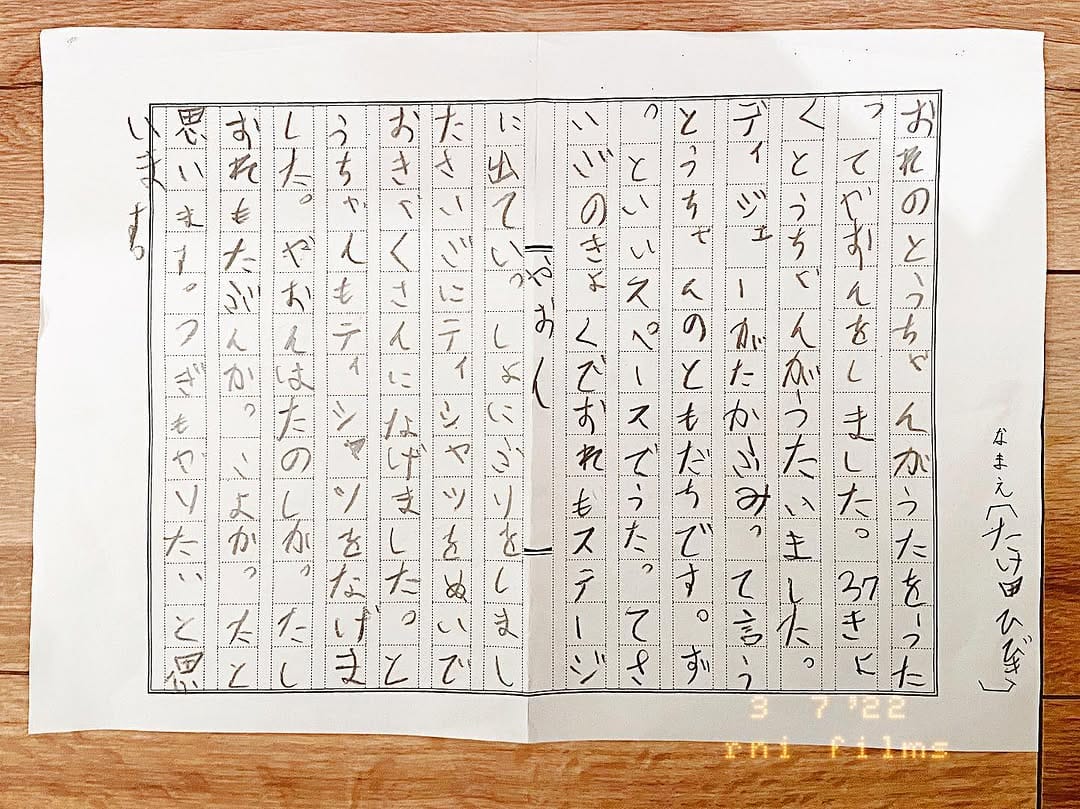 なまえ〔たけ田ひびき〕
おれのとうちゃんがうたをうた
ってやおんをしました。37きょ
くとうちゃんがうたいました。
ディジェーがたかふみって言う
とうちゃんのともだちです。ず
っといいスペースでうたってさ
いごのきょくでおれもステージ
やおん
に出ていっしょにふりをしまし
たさいごにティシャツをぬいで
おきゃくさんになげました。と
うちゃんもティシャツをなげま
した。やおんはたのしかったし
おれもたぶんかっこよかったと
思います。つぎもやりたいと思
います。
3 7 '22
rmi films